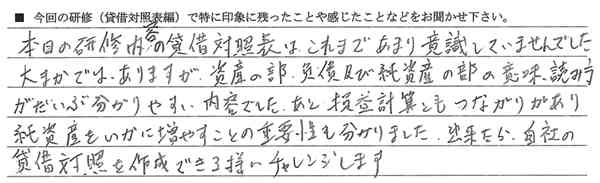 ■ 今回の研修（貸借対照表編）で特に印象に残ったことや感じたことなどをお聞かせ下さい。
本日の研修内容の貸借対照表は、これまであまり意識していませんでした
大まかでは、ありますが、資産の部、負債及び純資産の部の意味、読み方
がだいぶ分かりやすい内容でした。あと損益計算ともつながりがあり
純資産をいかに増やすことの重要性も分かりました。出来たら、自社の
貸借対照を作成できる様にチャレンジします